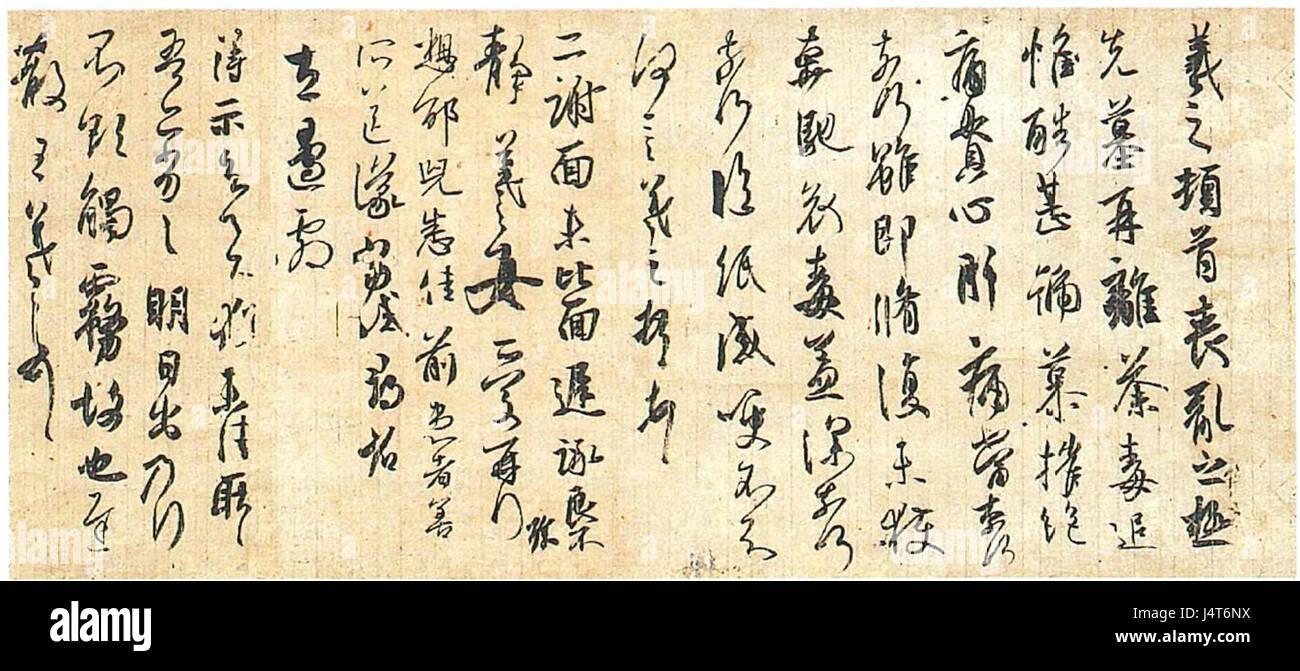 羲之頓首喪亂之極
先墓再離荼毒追
惟酷甚號慕摧絕
痛貫心肝痛當柰何
柰何雖即脩復未獲
奔馳哀毒益深柰何
柰何臨紙感哽不知
何言羲之頓首
二謝面未比面遲詠良不
静羲之女愛再拜
想邰兒悉佳前患者善
所送議當試尋
左邊劇
得示知足下猶未佳耿耿
吾亦劣劣明日出乃行
不欲觸霧故也遲
散王羲之頓首
alamy
Image ID: J4T6NX
www.alamy.com